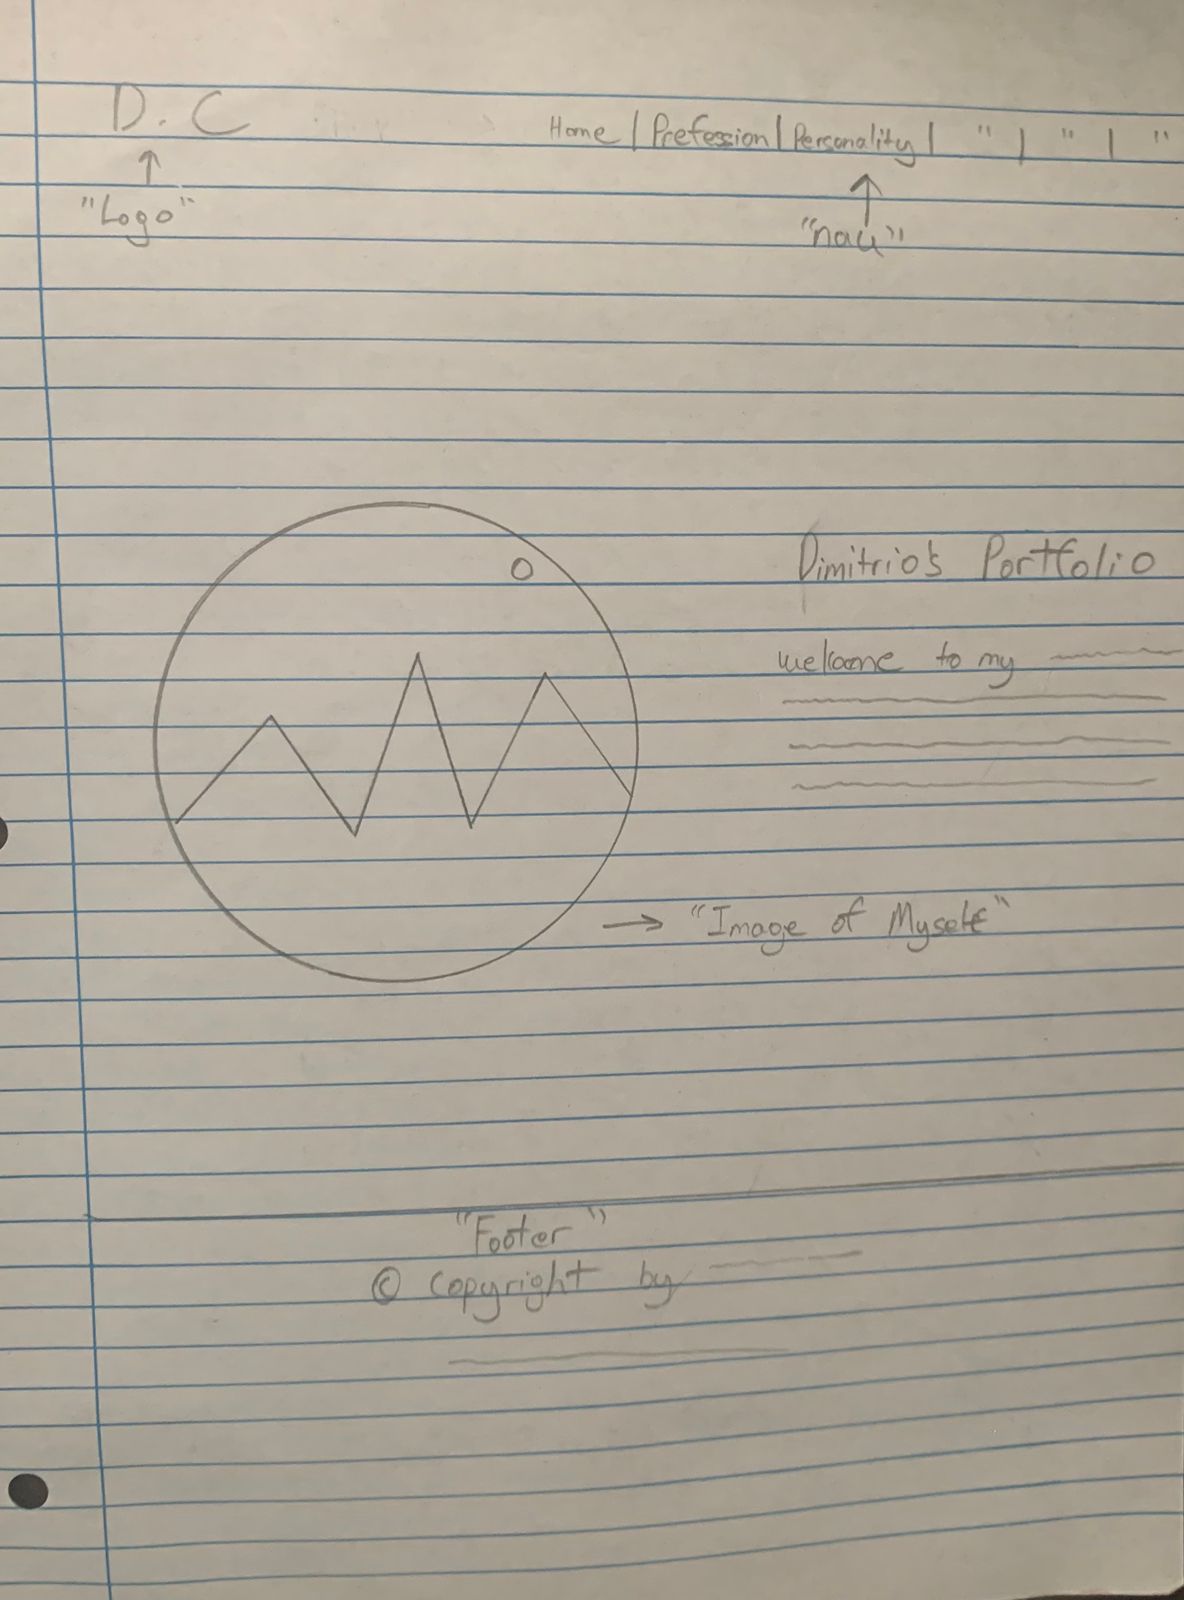 D. C
Home | Prefession | Personality | " | " | "
"Logo"
"nav"
Dimitrio's Portfolio
welcome to my
"Image of Myself"
"Footer"
© copyright by